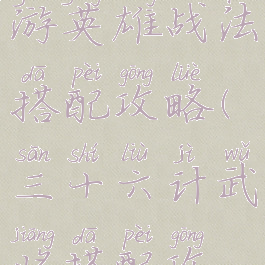 游英雄战法
dā pèi gōng lüè
搭配攻略(
sān shí liù jì wǔ
三十六计武
jiāng dā pèi gōng
将搭配攻